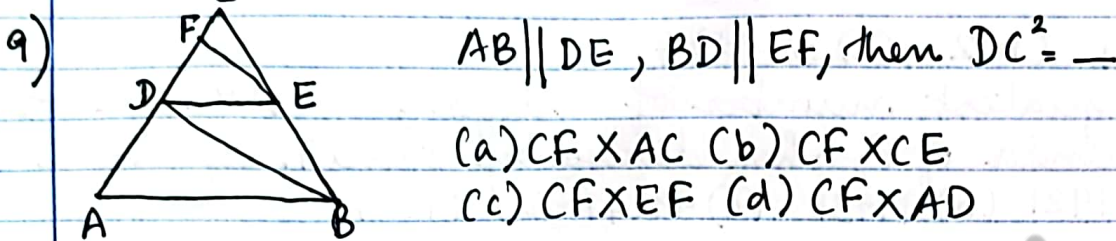 9)
F
D
E
A
B
AB || DE, BD || EF, then DC²= __
(a) CF X AC (b) CF X CE
(c) CF X EF (d) CF X AD